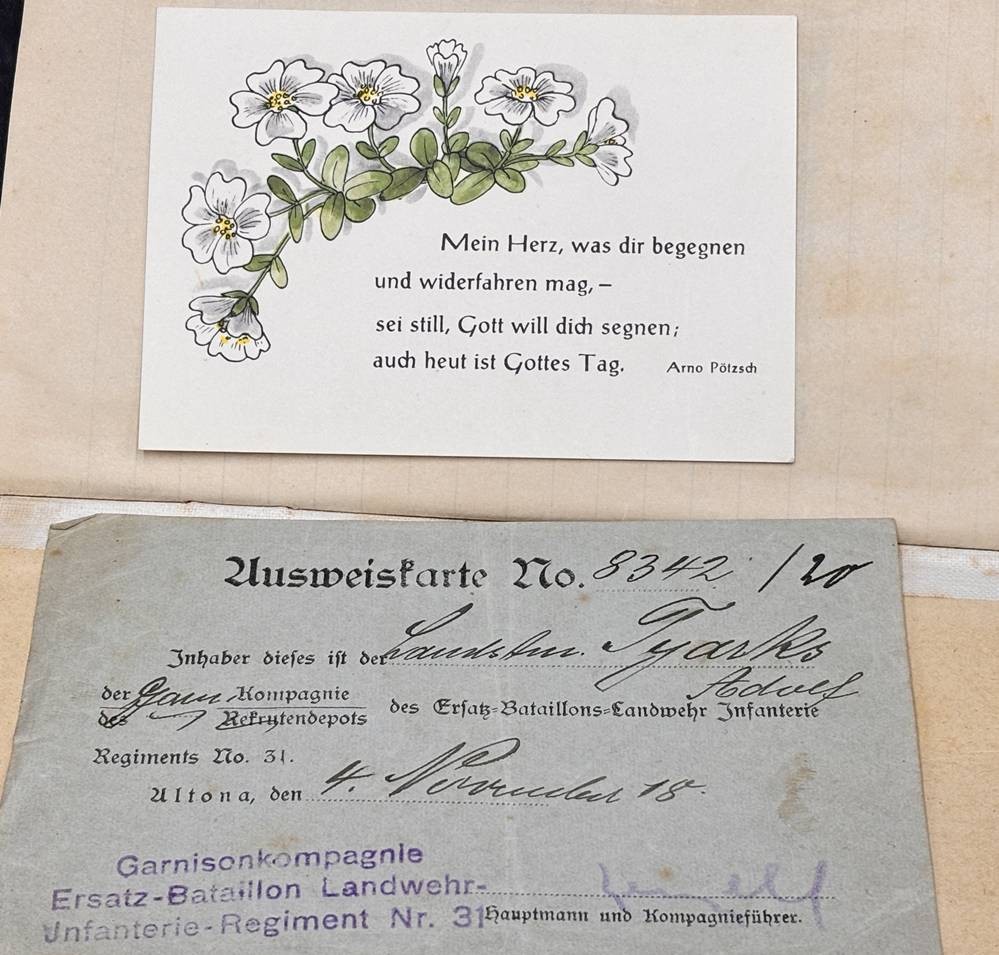 Mein Herz, was dir begegnen
und widerfahren mag, –
sei still, Gott will dich segnen;
auch heut ist Gottes Tag. Arno Pötzsch
Ausweiskarte No. 8342 / 20
Inhaber dieses ist der Landstm. Tyarks
Adolf
der Garn Kompagnie
des Rekrutendepots des Ersatz-Bataillons-Landwehr Infanterie
Regiments No. 31.
Altona, den 4. November 18.
Garnisonkompagnie
Ersatz-Bataillon Landwehr-
Unfanterie-Regiment Nr. 31 Hauptmann und Kompagnieführer.